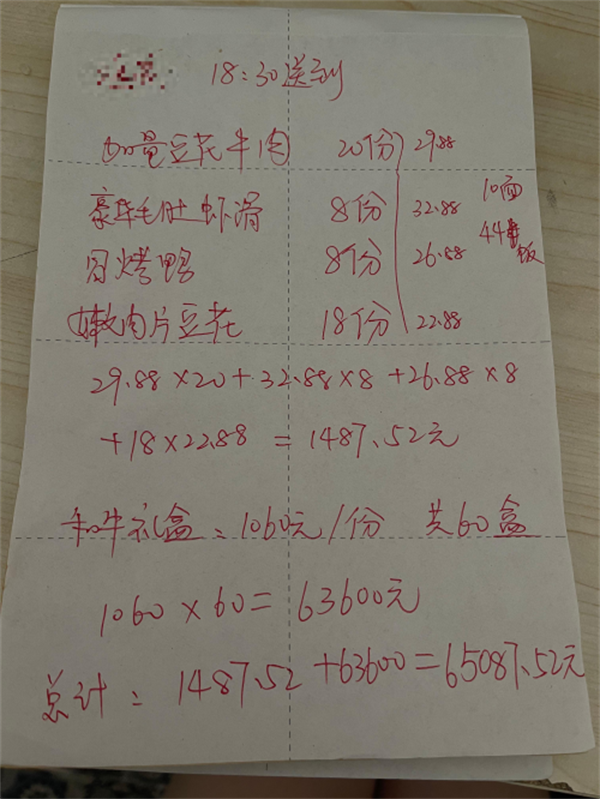 18:30送到
加量豆花牛肉 20份 29.88
豪华毛肚虾滑 8份 32.88 10面
冒烤鸭 8份 26.88 44 饭
嫩肉片豆花 18份 22.88
29.88×20+32.88×8+26.88×8
+18×22.88=1487.52元
和牛礼盒:1060元/份 共60盒
1060×60=63600元
总计:1487.52+63600=65087.52元